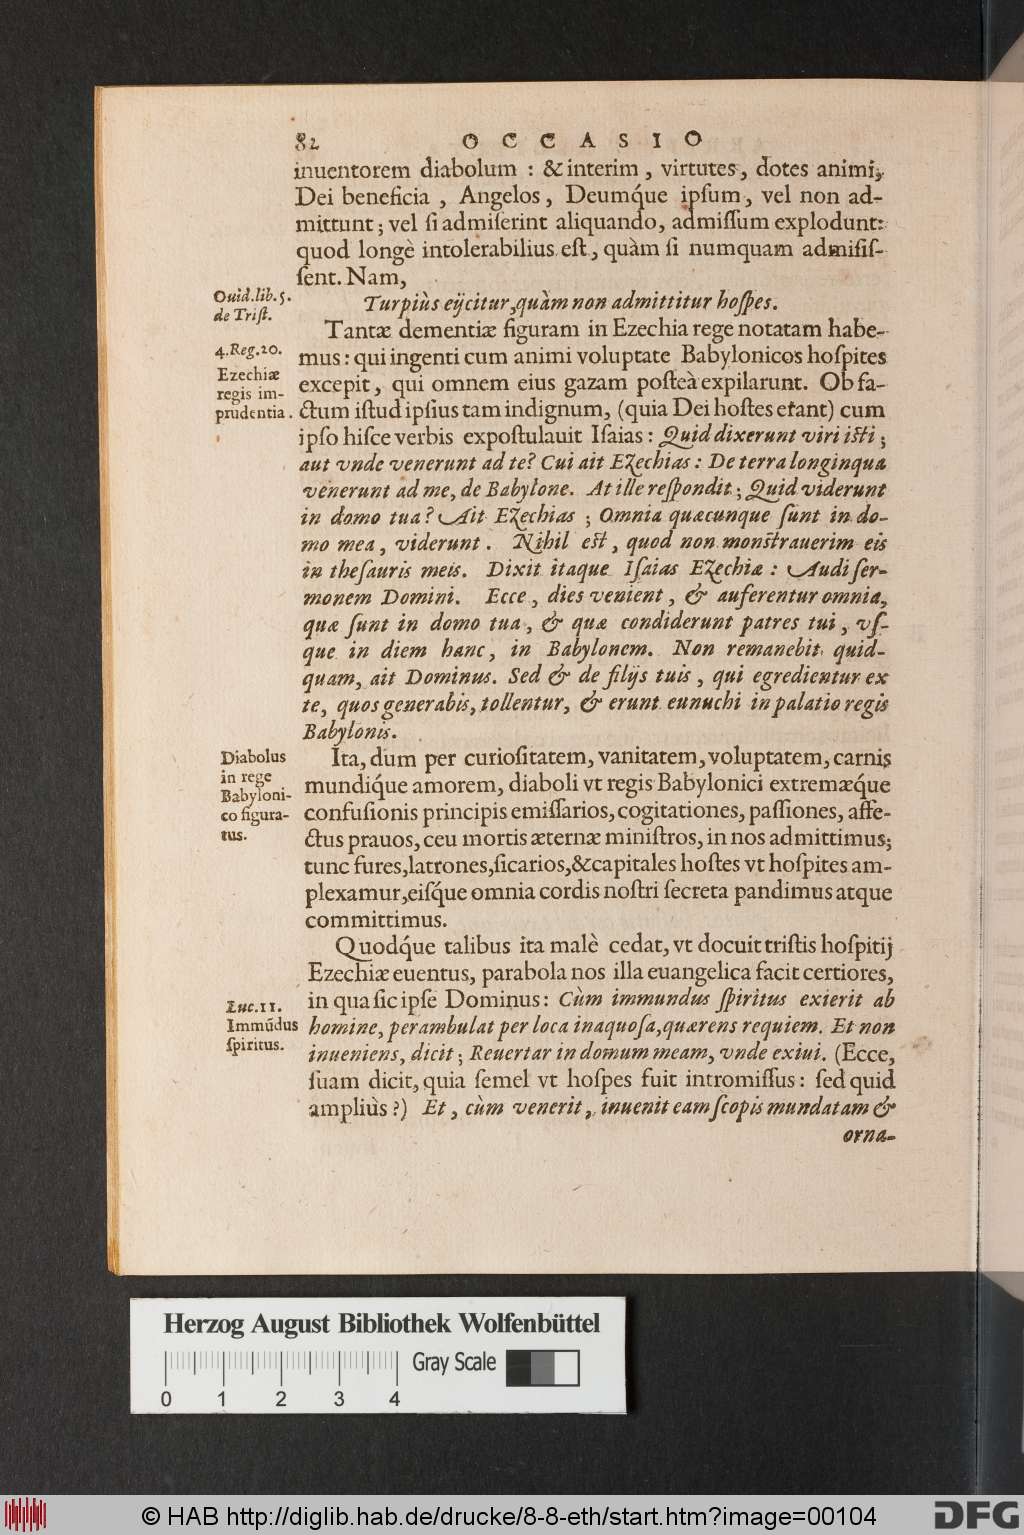 82 OCCASIO
inuentorem diabolum : & interim , virtutes, dotes animi,
Dei beneficia , Angelos, Deumq́ue ipſum, vel non ad-
mittunt ; vel ſi admiſerint aliquando, admiſſum explodunt:
quod longè intolerabilius eſt, quàm ſi numquam admiſiſ-
ſent. Nam,
Ouid. lib. 5.
de Triſt.
Turpiùs eijcitur, quàm non admittitur hoſpes.
Tantæ dementiæ figuram in Ezechia rege notatam habe-
4. Reg. 20.
Ezechiæ
regis im-
prudentia.
mus: qui ingenti cum animi voluptate Babylonicos hoſpites
excepit, qui omnem eius gazam poſteà expilarunt. Ob fa-
ctum iſtud ipſius tam indignum, (quia Dei hoſtes erant) cum
ipſo hiſce verbis expoſtulauit Iſaias: Quid dixerunt viri iſti ;
aut vnde venerunt ad te? Cui ait Ezechias : De terra longinqua
venerunt ad me, de Babylone. At ille reſpondit ; Quid viderunt
in domo tua? Ait Ezechias ; Omnia quæcunque ſunt in do-
mo mea, viderunt. Nihil eſt, quod non monſtrauerim eis
in theſauris meis. Dixit itaque Iſaias Ezechiæ : Audi ſer-
monem Domini. Ecce, dies venient, & auferentur omnia,
quæ ſunt in domo tua, & quæ condiderunt patres tui, vſ-
que in diem hanc, in Babylonem. Non remanebit quid-
quam, ait Dominus. Sed & de filijs tuis, qui egredientur ex
te, quos generabis, tollentur, & erunt eunuchi in palatio regis
Babylonis.
Diabolus
in rege
Babyloni-
co figura-
tus.
Ita, dum per curioſitatem, vanitatem, voluptatem, carnis
mundiq́ue amorem, diaboli vt regis Babylonici extremæq́ue
confuſionis principis emiſſarios, cogitationes, paſſiones, affe-
ctus prauos, ceu mortis æternæ miniſtros, in nos admittimus;
tunc fures, latrones, ſicarios, & capitales hoſtes vt hoſpites am-
plexamur, eiſq́ue omnia cordis noſtri ſecreta pandimus atque
committimus.
Quodq́ue talibus ita malè cedat, vt docuit triſtis hoſpitij
Ezechiæ euentus, parabola nos illa euangelica facit certiores,
Luc. 11.
Immūdus
ſpiritus.
in qua ſic ipſe Dominus: Cùm immundus ſpiritus exierit ab
homine, perambulat per loca inaquoſa, quærens requiem. Et non
inueniens, dicit ; Reuertar in domum meam, vnde exiui. (Ecce,
ſuam dicit, quia ſemel vt hoſpes fuit intromiſſus: ſed quid
ampliùs?) Et, cùm venerit, inuenit eam ſcopis mundatam &
orna-
Herzog August Bibliothek Wolfenbüttel
Gray Scale
0 1 2 3 4
© HAB http://diglib.hab.de/drucke/8-8-eth/start.htm?image=00104
DFG